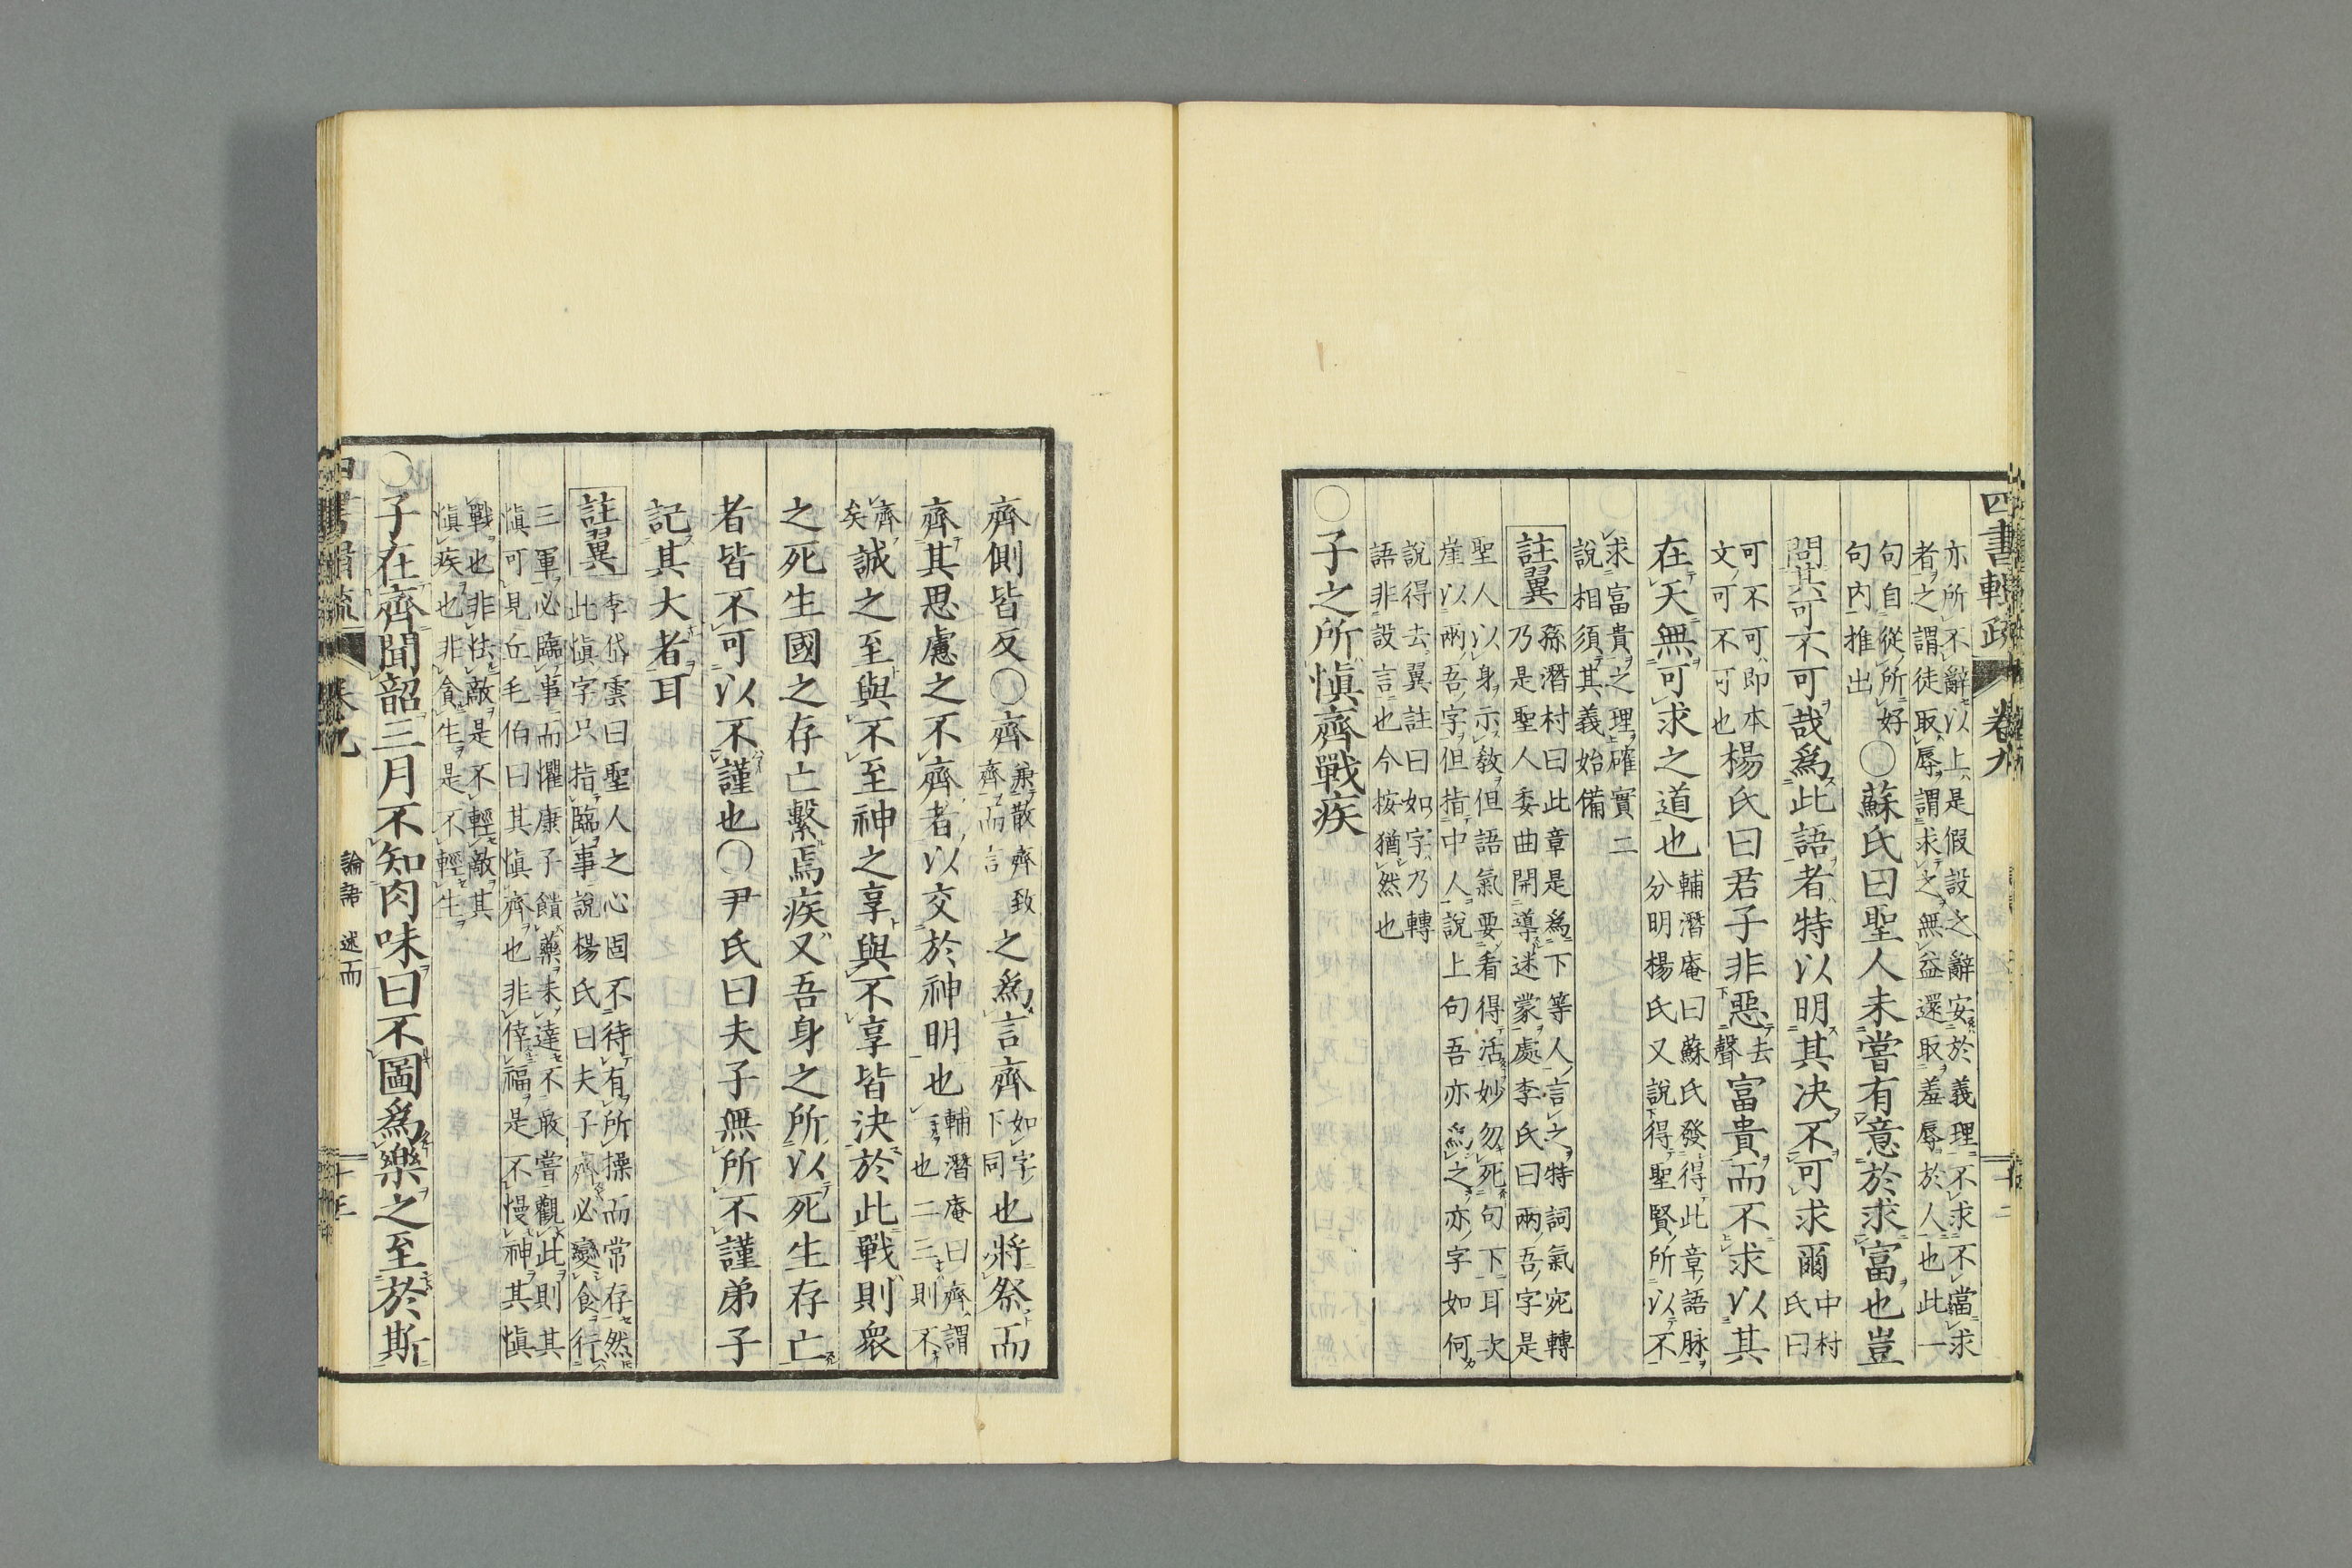 四書輯疏 卷九 十二
亦所不辭以上是假設之辭安於義理不求不當求
者之謂徒取辱謂求之無益還取羞辱於人也此一
句自從所好
句內推出
○蘇氏曰聖人未嘗有意於求富也豈
問其可不可哉爲此語者特以明其決不可求爾
中村
氏曰
可不可即本
文可不可也
楊氏曰君子非惡
去
聲
富貴而不求以其
在天無可求之道也
輔潛庵曰蘇氏發得此章語脉
分明楊氏又說得聖賢所以不
求富貴之理確實二
說相須其義始備
註翼
孫潛村曰此章是爲下等人言之特詞氣宛轉
乃是聖人委曲開導迷蒙處李氏曰兩吾字是
聖人以身示教但語氣要看得活妙勿死句下耳次
崖以兩吾字但指中人說上句吾亦爲之亦字如何
說得去翼註曰如字乃轉
語非設言也今按猶然也
○子之所愼齊戰疾
齊側皆反○齊
兼散齊致
齊而言
之爲言齊
如字
下同
也將祭而
齊其思慮之不齊者以交於神明也
輔潛庵曰齊謂
一也二三則不
齊
矣
誠之至與不至神之享與不享皆決於此戰則衆
之死生國之存亡繫焉疾又吾身之所以死生存亡
者皆不可以不謹也○尹氏曰夫子無所不謹弟子
記其大者耳
註翼
李岱雲曰聖人之心固不待有所操而常存然
此愼字只指臨事說楊氏曰夫子齊必變食行
三軍必臨事而懼康子饋藥未達不敢嘗觀此則其
愼可見丘毛伯曰其愼齊也非倖福是不慢神其愼
戰也非怯敵是不輕敵其
愼疾也非貪生是不輕生
○子在齊聞韶三月不知肉味曰不圖爲樂之至於斯
四書輯疏 卷九 論語 述而 十三